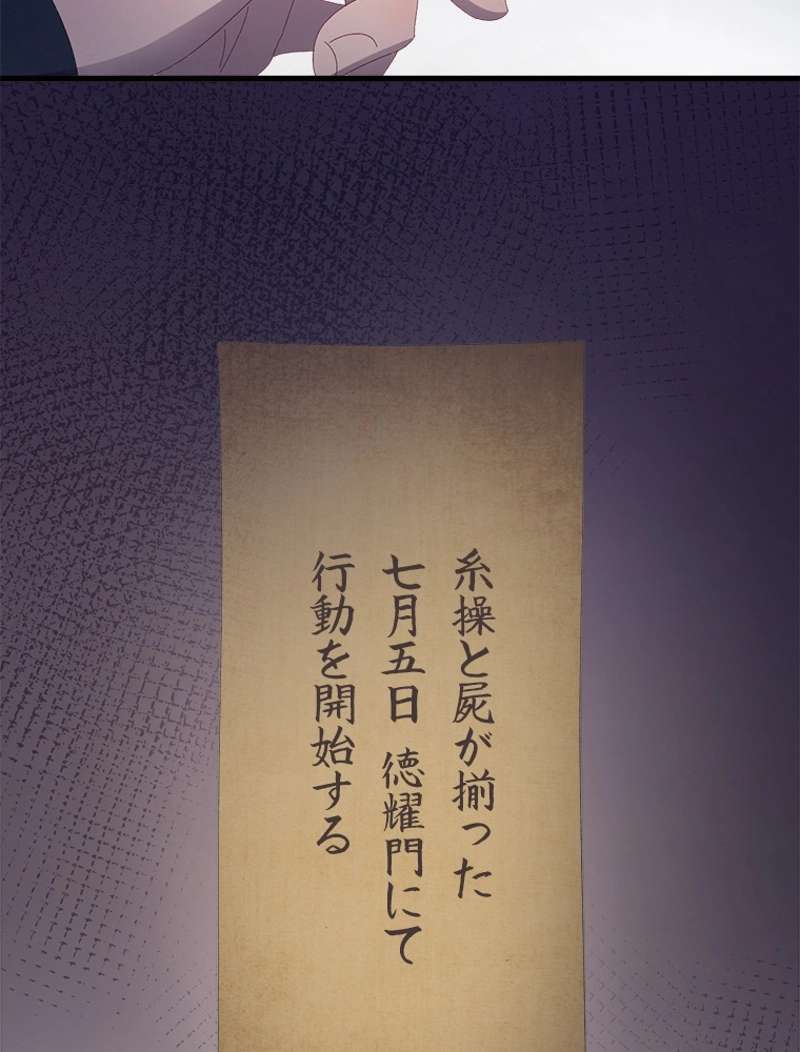 糸操と屍が揃った
七月五日 徳耀門にて
行動を開始する